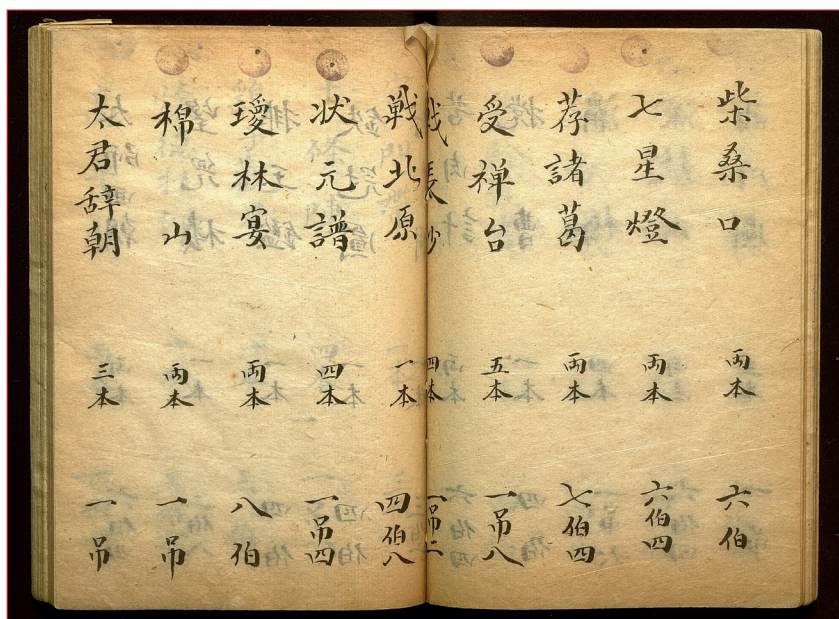 柴桑口 両本 六伯
七星燈 両本 六伯四
荐諸葛 両本 七伯四
受禅台 五本 一吊八
戦長沙 四本 一吊二
戦北原 一本 四伯八
状元譜 四本 一吊四
瓊林宴 両本 八伯
棉山 両本 一吊
太君辞朝 三本 一吊